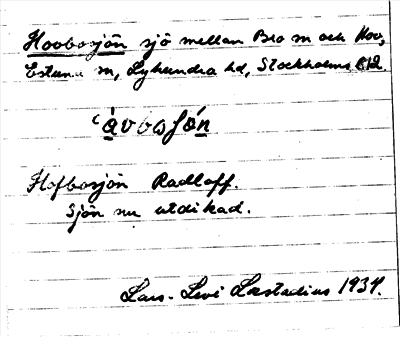 Hovbosjön sjö mellan Bro sn och Hov,
Estuna sn, Lyhundra hd, Stockholms län.
Hofbosjön Radloff.
Sjön nu utdikad.
Lars-Levi Læstadius 1934.